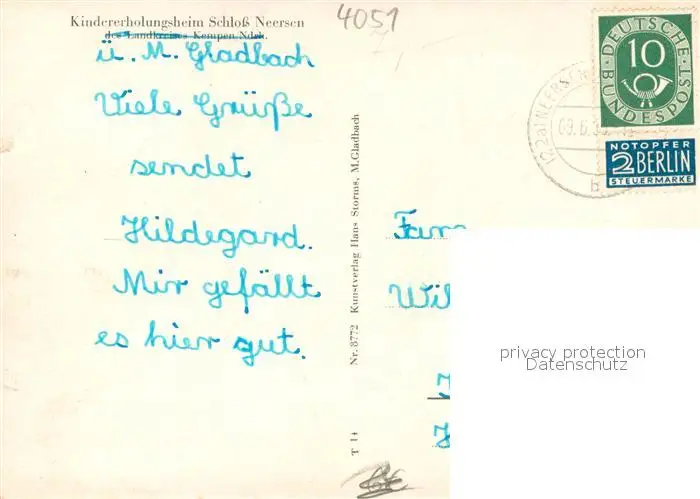 Kindererholungsheim Schloß Neersen
des Landkreises Kempen Ndrh.
ü. M. Gladbach
Viele Grüße
sendet
Hildegard.
Mir gefällt
es hier gut.
4051
Nr. 8772 Kunstverlag Hans Storms, M.Gladbach
T 14
DEUTSCHE
BUNDESPOST
10
NOTOPFER
2 BERLIN
STEUERMARKE
(22a) NEERSEN
b
Fam
Wil
privacy protection
Datenschutz